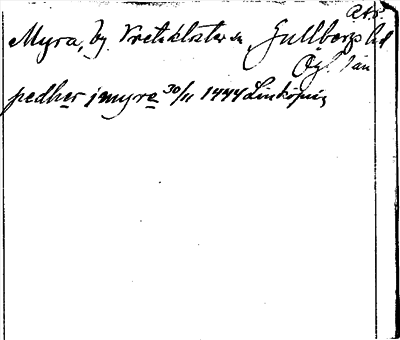 Myra, by. Vretakloster sn Gullbergs hd
Ög. län
pedher j myre 30/11 1444 Linköping